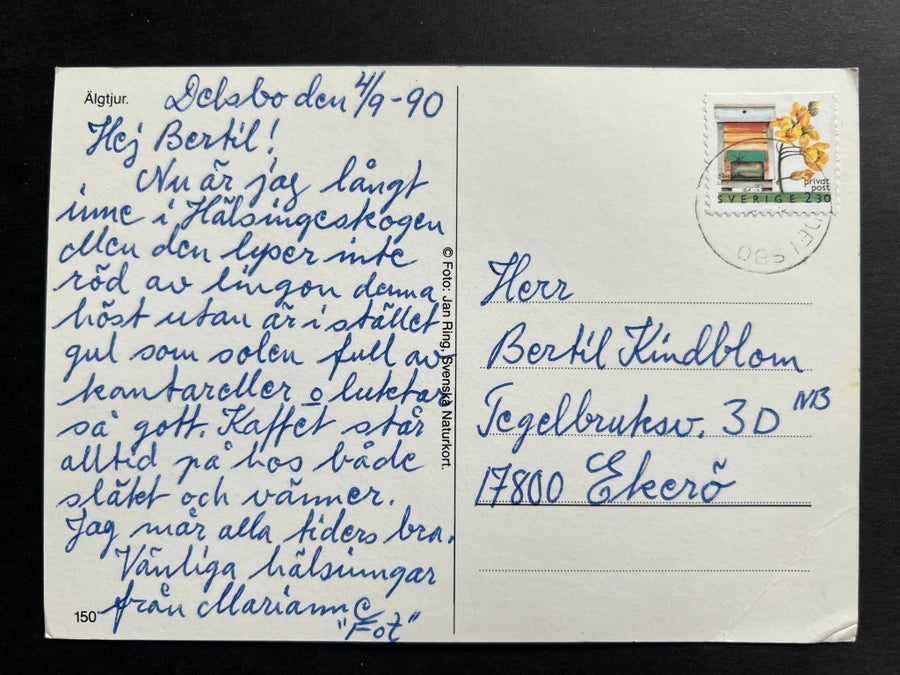 Älgtjur.
Delsbo den 4/9-90
Hej Bertil!
Nu är jag långt
inne i Hälsingeskogen
Men den lyser inte
röd av lingon denna
höst utan är i stället
gul som solen full av
kantareller o luktar
så gott. Kaffet står
alltid på hos både
släkt och vänner.
Jag mår alla tiders bra.
Vänliga hälsningar
från Marianne
"Fot"
150
© Foto: Jan Ring, Svenska Naturkort.
privat
post
SVERIGE 2.30
Herr
Bertil Kindblom
Tegelbruksv. 3D NB
17800 Ekerö